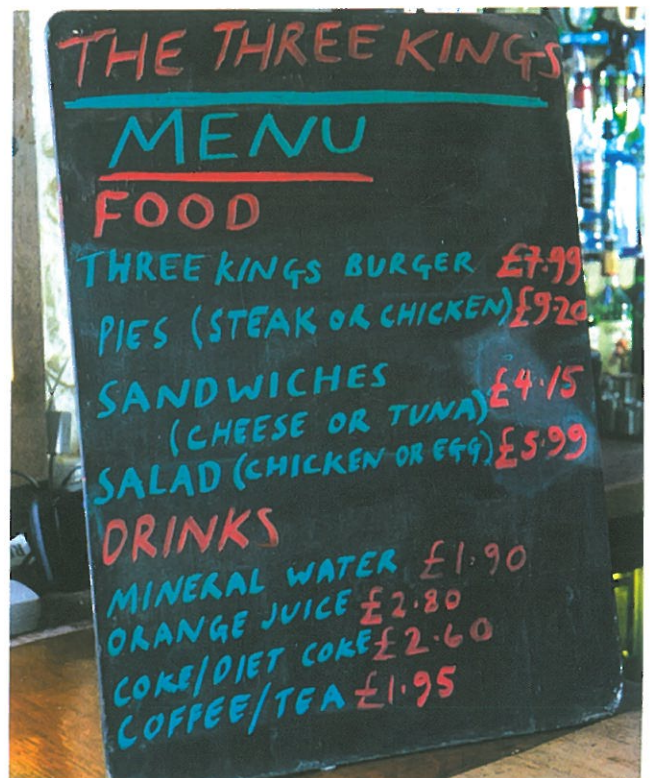 THE THREE KINGS
MENU
FOOD
THREE KINGS BURGER £7.99
PIES (STEAK OR CHICKEN) £9.20
SANDWICHES
(CHEESE OR TUNA) £4.15
SALAD (CHICKEN OR EGG) £5.99
DRINKS
MINERAL WATER £1.90
ORANGE JUICE £2.80
COKE/DIET COKE £2.60
COFFEE/TEA £1.95